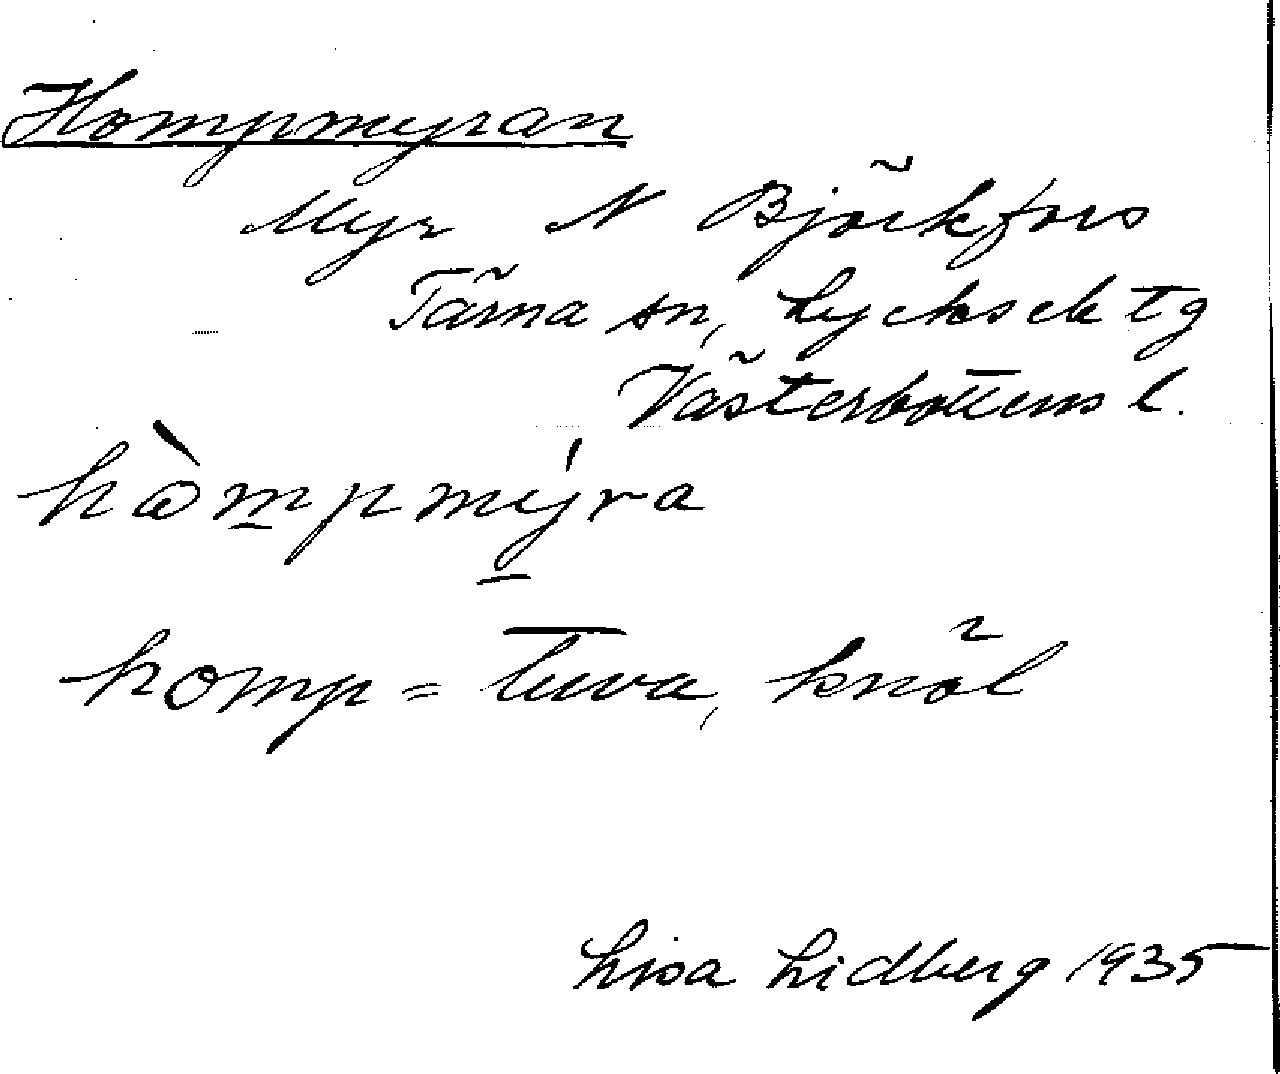 Hompmyran
Myr N Björkfors
Tärna sn, Lycksele tg
Västerbottens l.
hòmpmýra
homp = tuva, knöl
Lisa Lidberg 1935